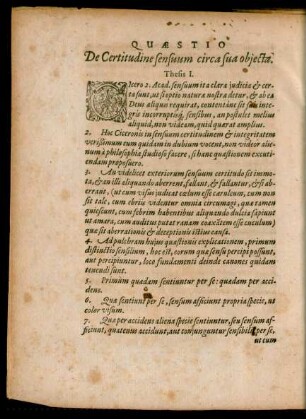 QUÆSTIO
De Certitudine sensuum circa sua objecta.
Thesis I.
Cicero 2. Acad. sensuum ita clara judicia & cer-
ta sunt, ut si optio natura nostra detur, & ab ea
Deus aliquis requirat, contentáne sit suis inte-
gris incorruptisq́ sensibus, an postulet melius
aliquid, non videam, quid quærat amplius.
2. Huc Ciceronis iu sensuum certitudinem & integritatem
versismum cum quidam in dubium vocent, non videor alie-
num à philosophia studioso facere, si hanc quæstionem excutien-
dam proposuero.
3. An videlicet exteriorum sensuum certitudo sit immo-
ta, & an illi aliquando aberrent, fallant, & fallantur, & si ab-
errant, (ut cum visus judicat cœlum esse cæruleum, cum non
sit tale, cum ebrio videntur omnia circumagi, qua tamen
quiescunt, cum febrem habentibus aliquando dulcia sapiunt
ut amara, cum auditus putat ranam coaxantem esse cuculum)
quæ sit aberrationis & deceptionis istius causa.
4. Ad pulchram hujus quæstionis explicationem, primum
distinctio sensilium, hoc est, eorum quæ sensu percipi possunt,
aut percipiuntur, loco fundamenti deinde canones quidam
tenendi sunt.
5. Primùm quædam sentiuntur per se: quædam per acci-
dens.
6. Quæ sentiuntur per se, sensum afficiunt propria specie, ut
color visum.
7. Quæ per accidens aliena specie sentiuntur, seu sensum af-
ficiunt, quatenus accidunt, aut conjunguntur sensibili per se,
ut cum